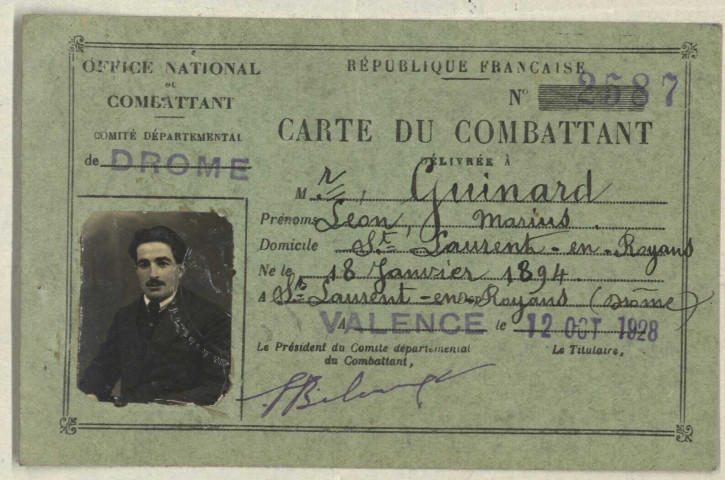 OFFICE NATIONAL
DU
COMBATTANT
COMITÉ DÉPARTEMENTAL
de DROME
RÉPUBLIQUE FRANÇAISE
N° 2587
CARTE DU COMBATTANT
DÉLIVRÉE À
M r, Guinard
Prénoms Léon, Marius.
Domicile St Laurent-en-Royans
Né le 18 Janvier 1894
A St Laurent-en-Royans (Drôme)
A VALENCE le 12 OCT 1928
Le Président du Comité départemental
du Combattant,
Le Titulaire,